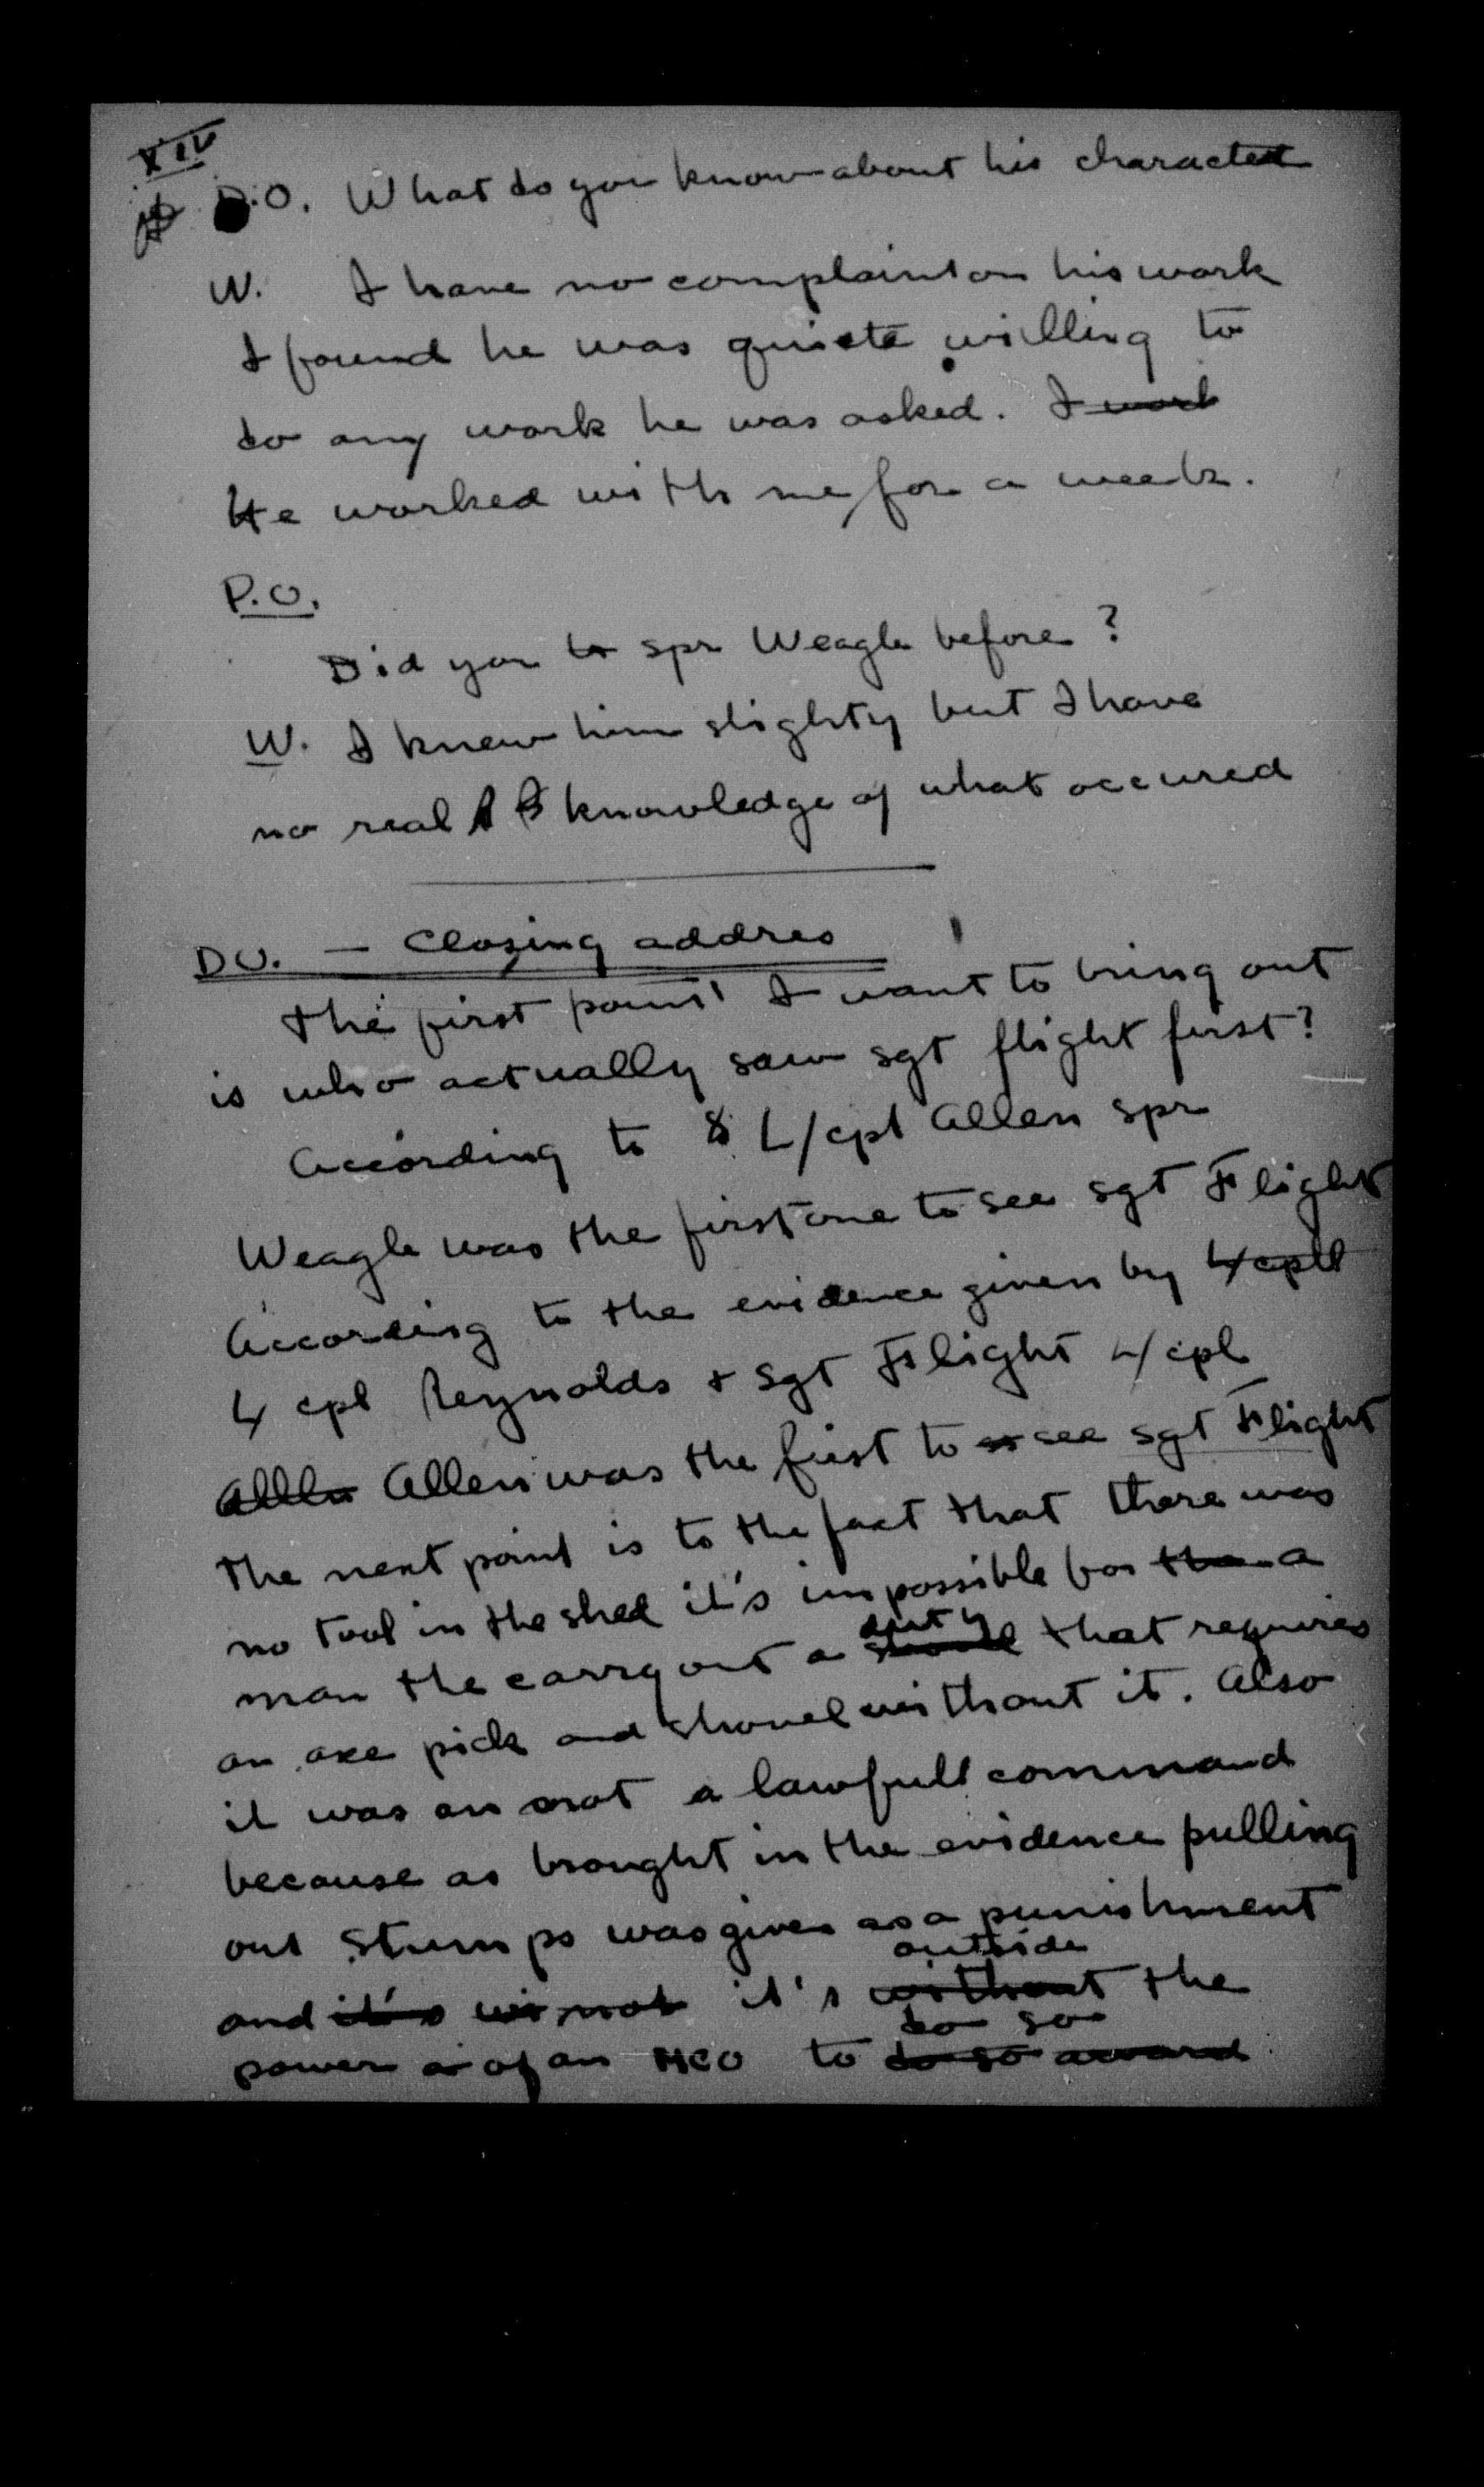 XIV
D.O. What do you know about his character
W. I have no complaint on his work
I found he was quiete willing to
do any work he was asked. I work
He worked with me for a week.
P.O.
Did you to spr Weagle before?
W. I knew him slighty but I have
no real knowledge of what occured
DO. - Closing addres
the first point I want to bring out
is who actually saw sgt flight first?
According to L/cpl Allen spr
Weagle was the first one to see sgt Flight
According to the evidence given by L/cpl
L/cpl Reynolds + Sgt Flight L/cpl
Allen was the first to see sgt Flight
the next point is to the fact that there was
no tool in the shed it's impossible for the a
man the carry out a duty that requires
an axe pick and shovel without it. Also
it was an not a lawfull command
because as brought in the evidence pulling
out stumps was given as a punishment
outside
and it's it's without the
do so
power of an NCO to do so award